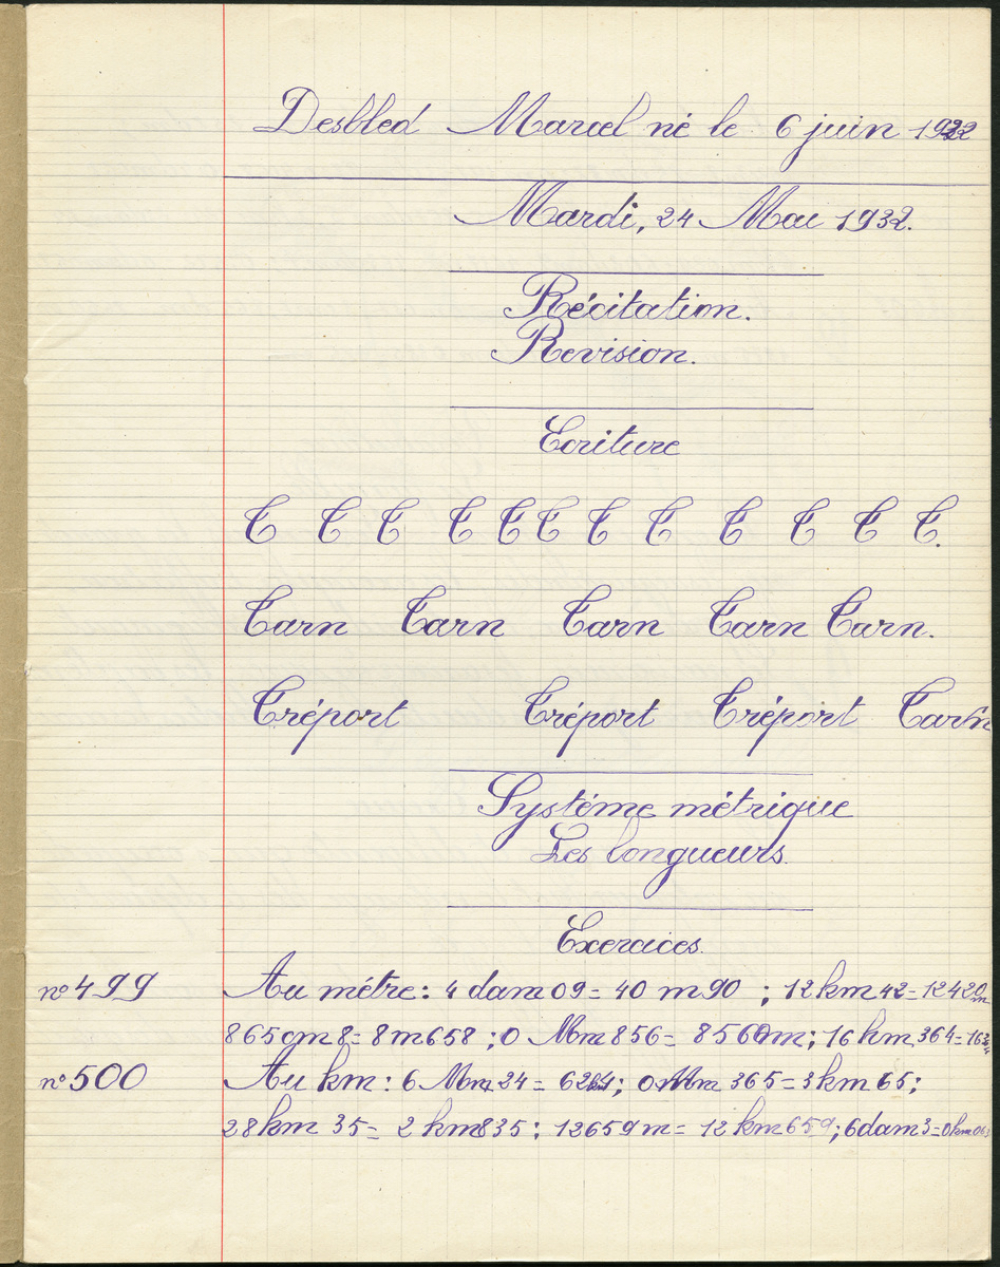 Desbled Marcel né le 6 juin 1922
Mardi, 24 Mai 1932.
Récitation.
Revision.
Ecriture
T T T T T T T T T T T T.
Tarn Tarn Tarn Tarn Tarn.
Tréport Tréport Tréport Tarn
Systéme métrique
Les longueurs.
Exercices.
n° 499 Au métre: 4 dam 09 = 40 m 90 ; 12 km 42 = 12420m
865cm 8 = 8m658 ; 0 Mm 856 = 8560m; 16 hm 364 =
n° 500 Au km: 6 Mm 24 = ; 0 Mm 365 = 3 km 65;
28hm 35 = 2 km835 ; 12659m = 12 km 659 ; 6dam3 = 0km063